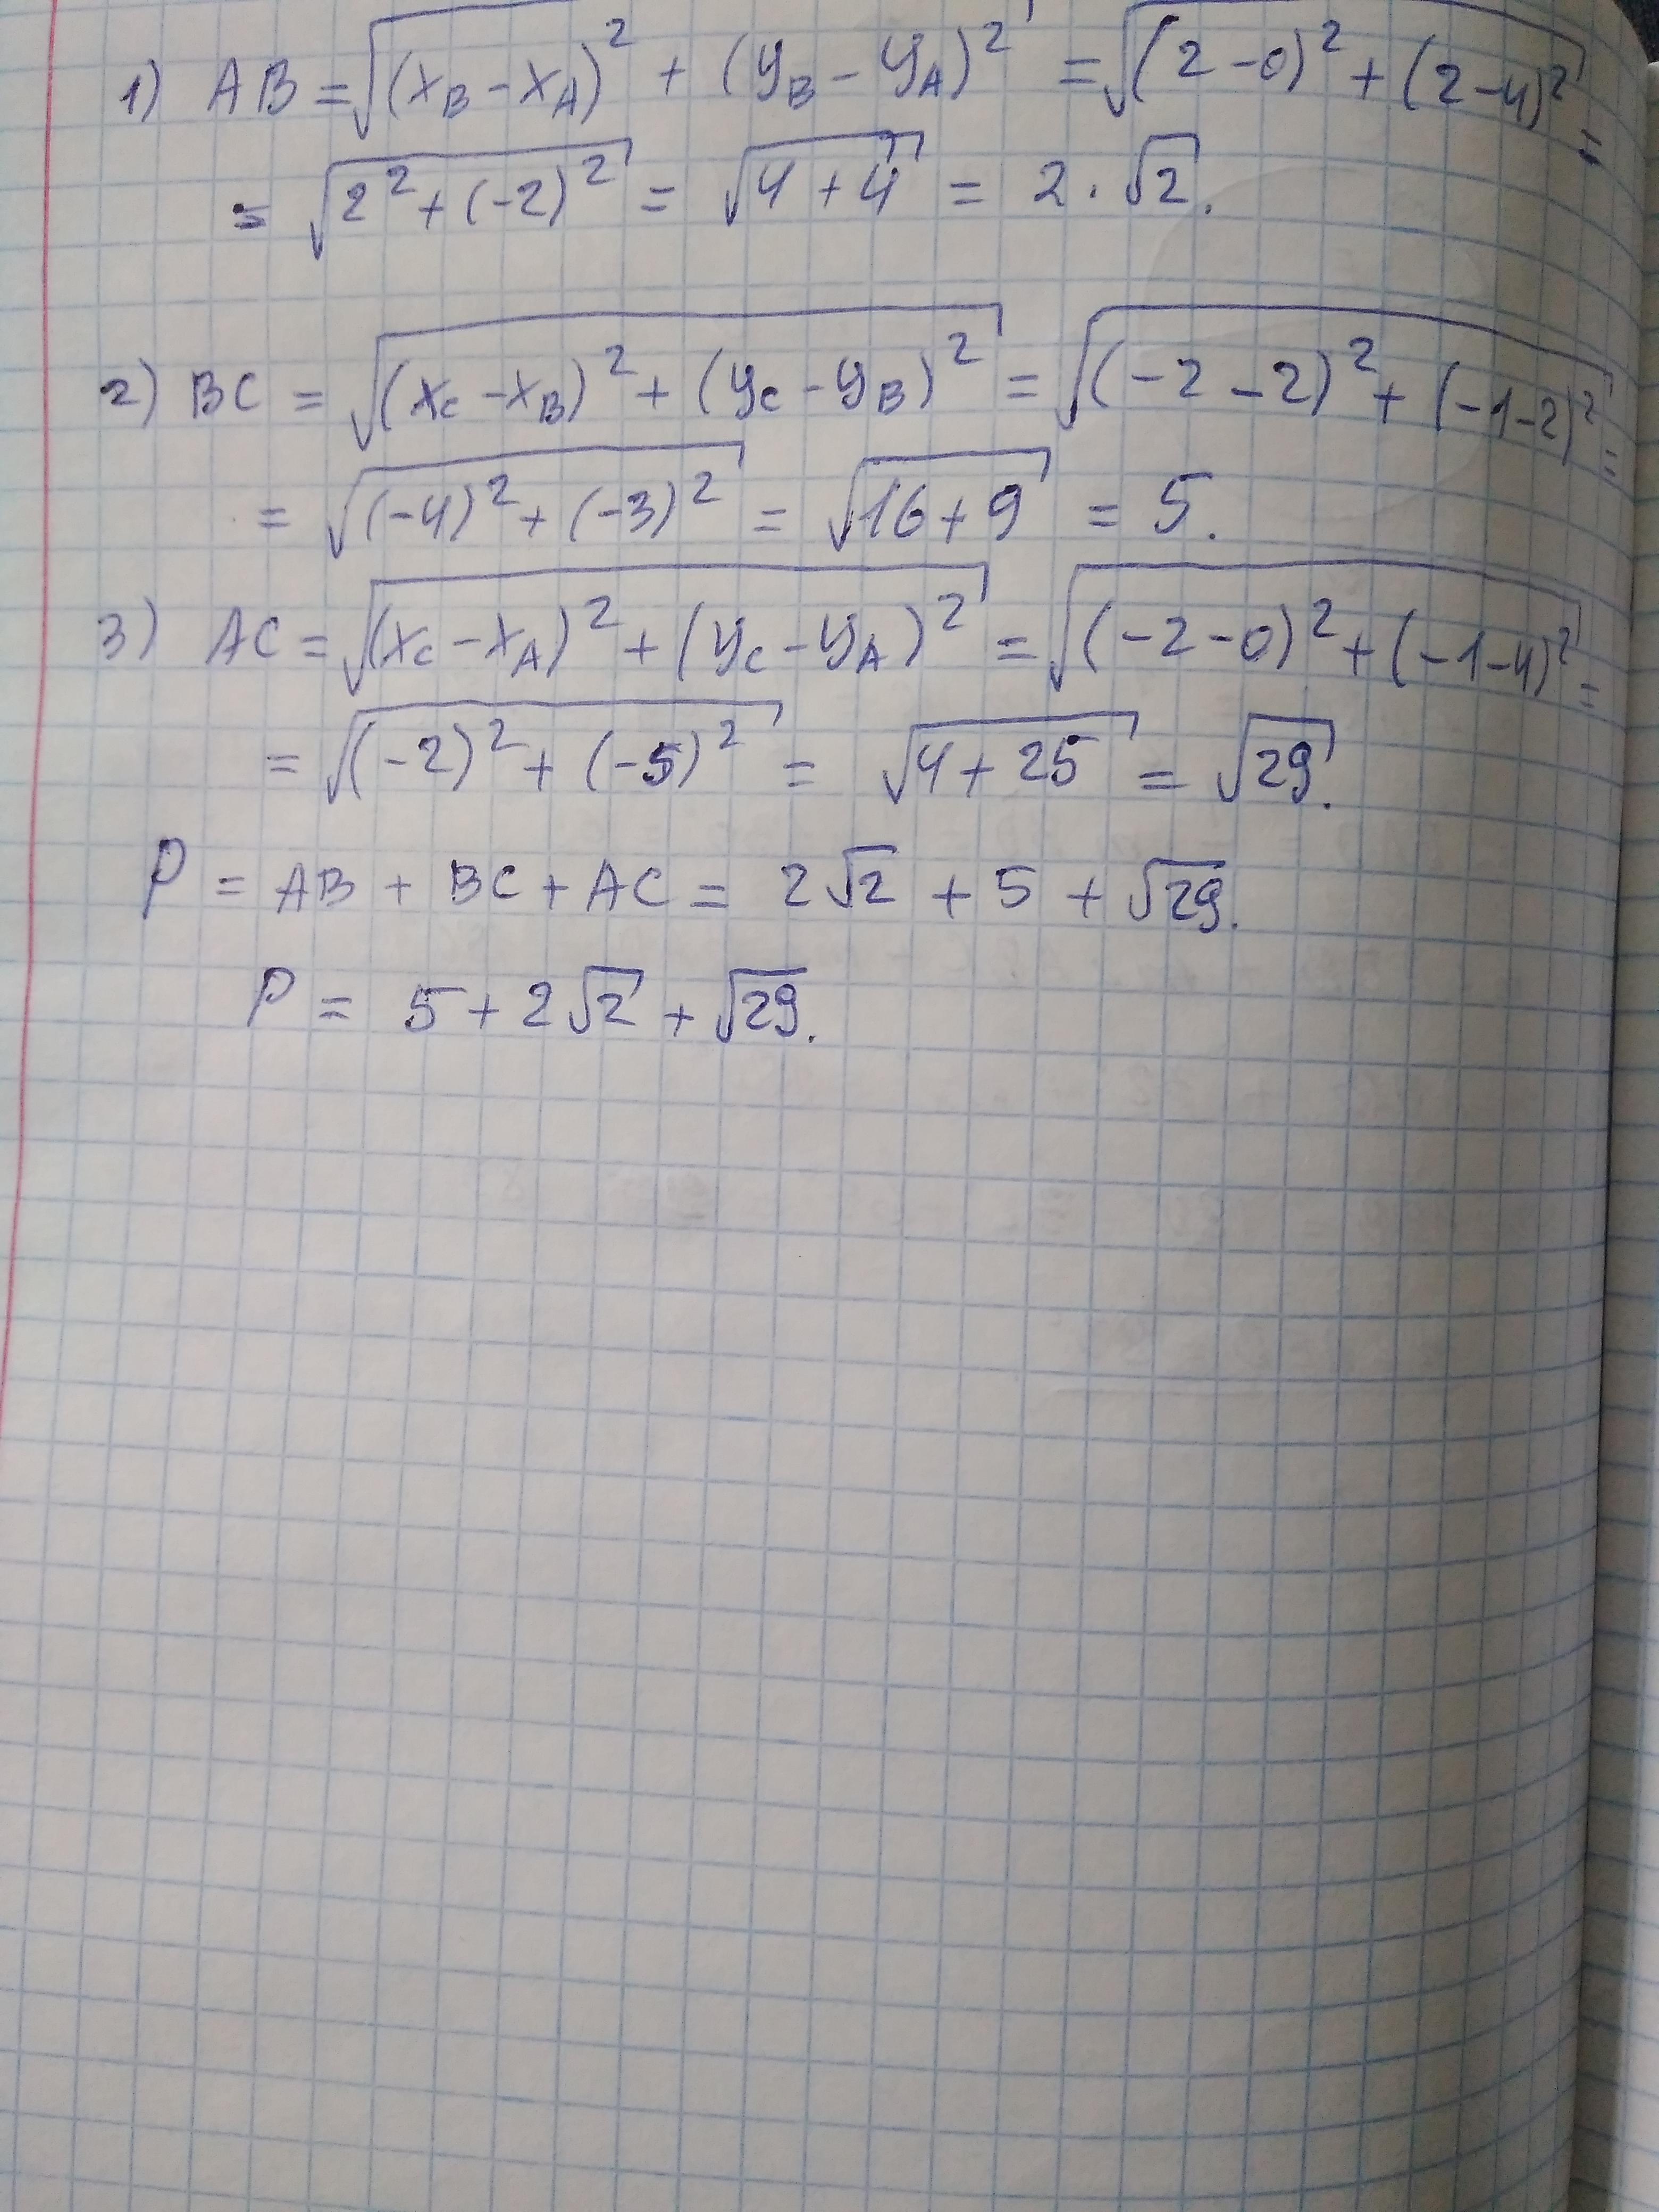 1) AB = √((x_B - x_A)² + (y_B - y_A)²) = √((2 - 0)² + (2 - 4)²) =
= √(2² + (-2)²) = √(4 + 4) = 2 · √2.
2) BC = √((x_C - x_B)² + (y_C - y_B)²) = √((-2 - 2)² + (-1 - 2)²) =
= √((-4)² + (-3)²) = √(16 + 9) = 5.
3) AC = √((x_C - x_A)² + (y_C - y_A)²) = √((-2 - 0)² + (-1 - 4)²) =
= √((-2)² + (-5)²) = √(4 + 25) = √29.
P = AB + BC + AC = 2√2 + 5 + √29.
P = 5 + 2√2 + √29.